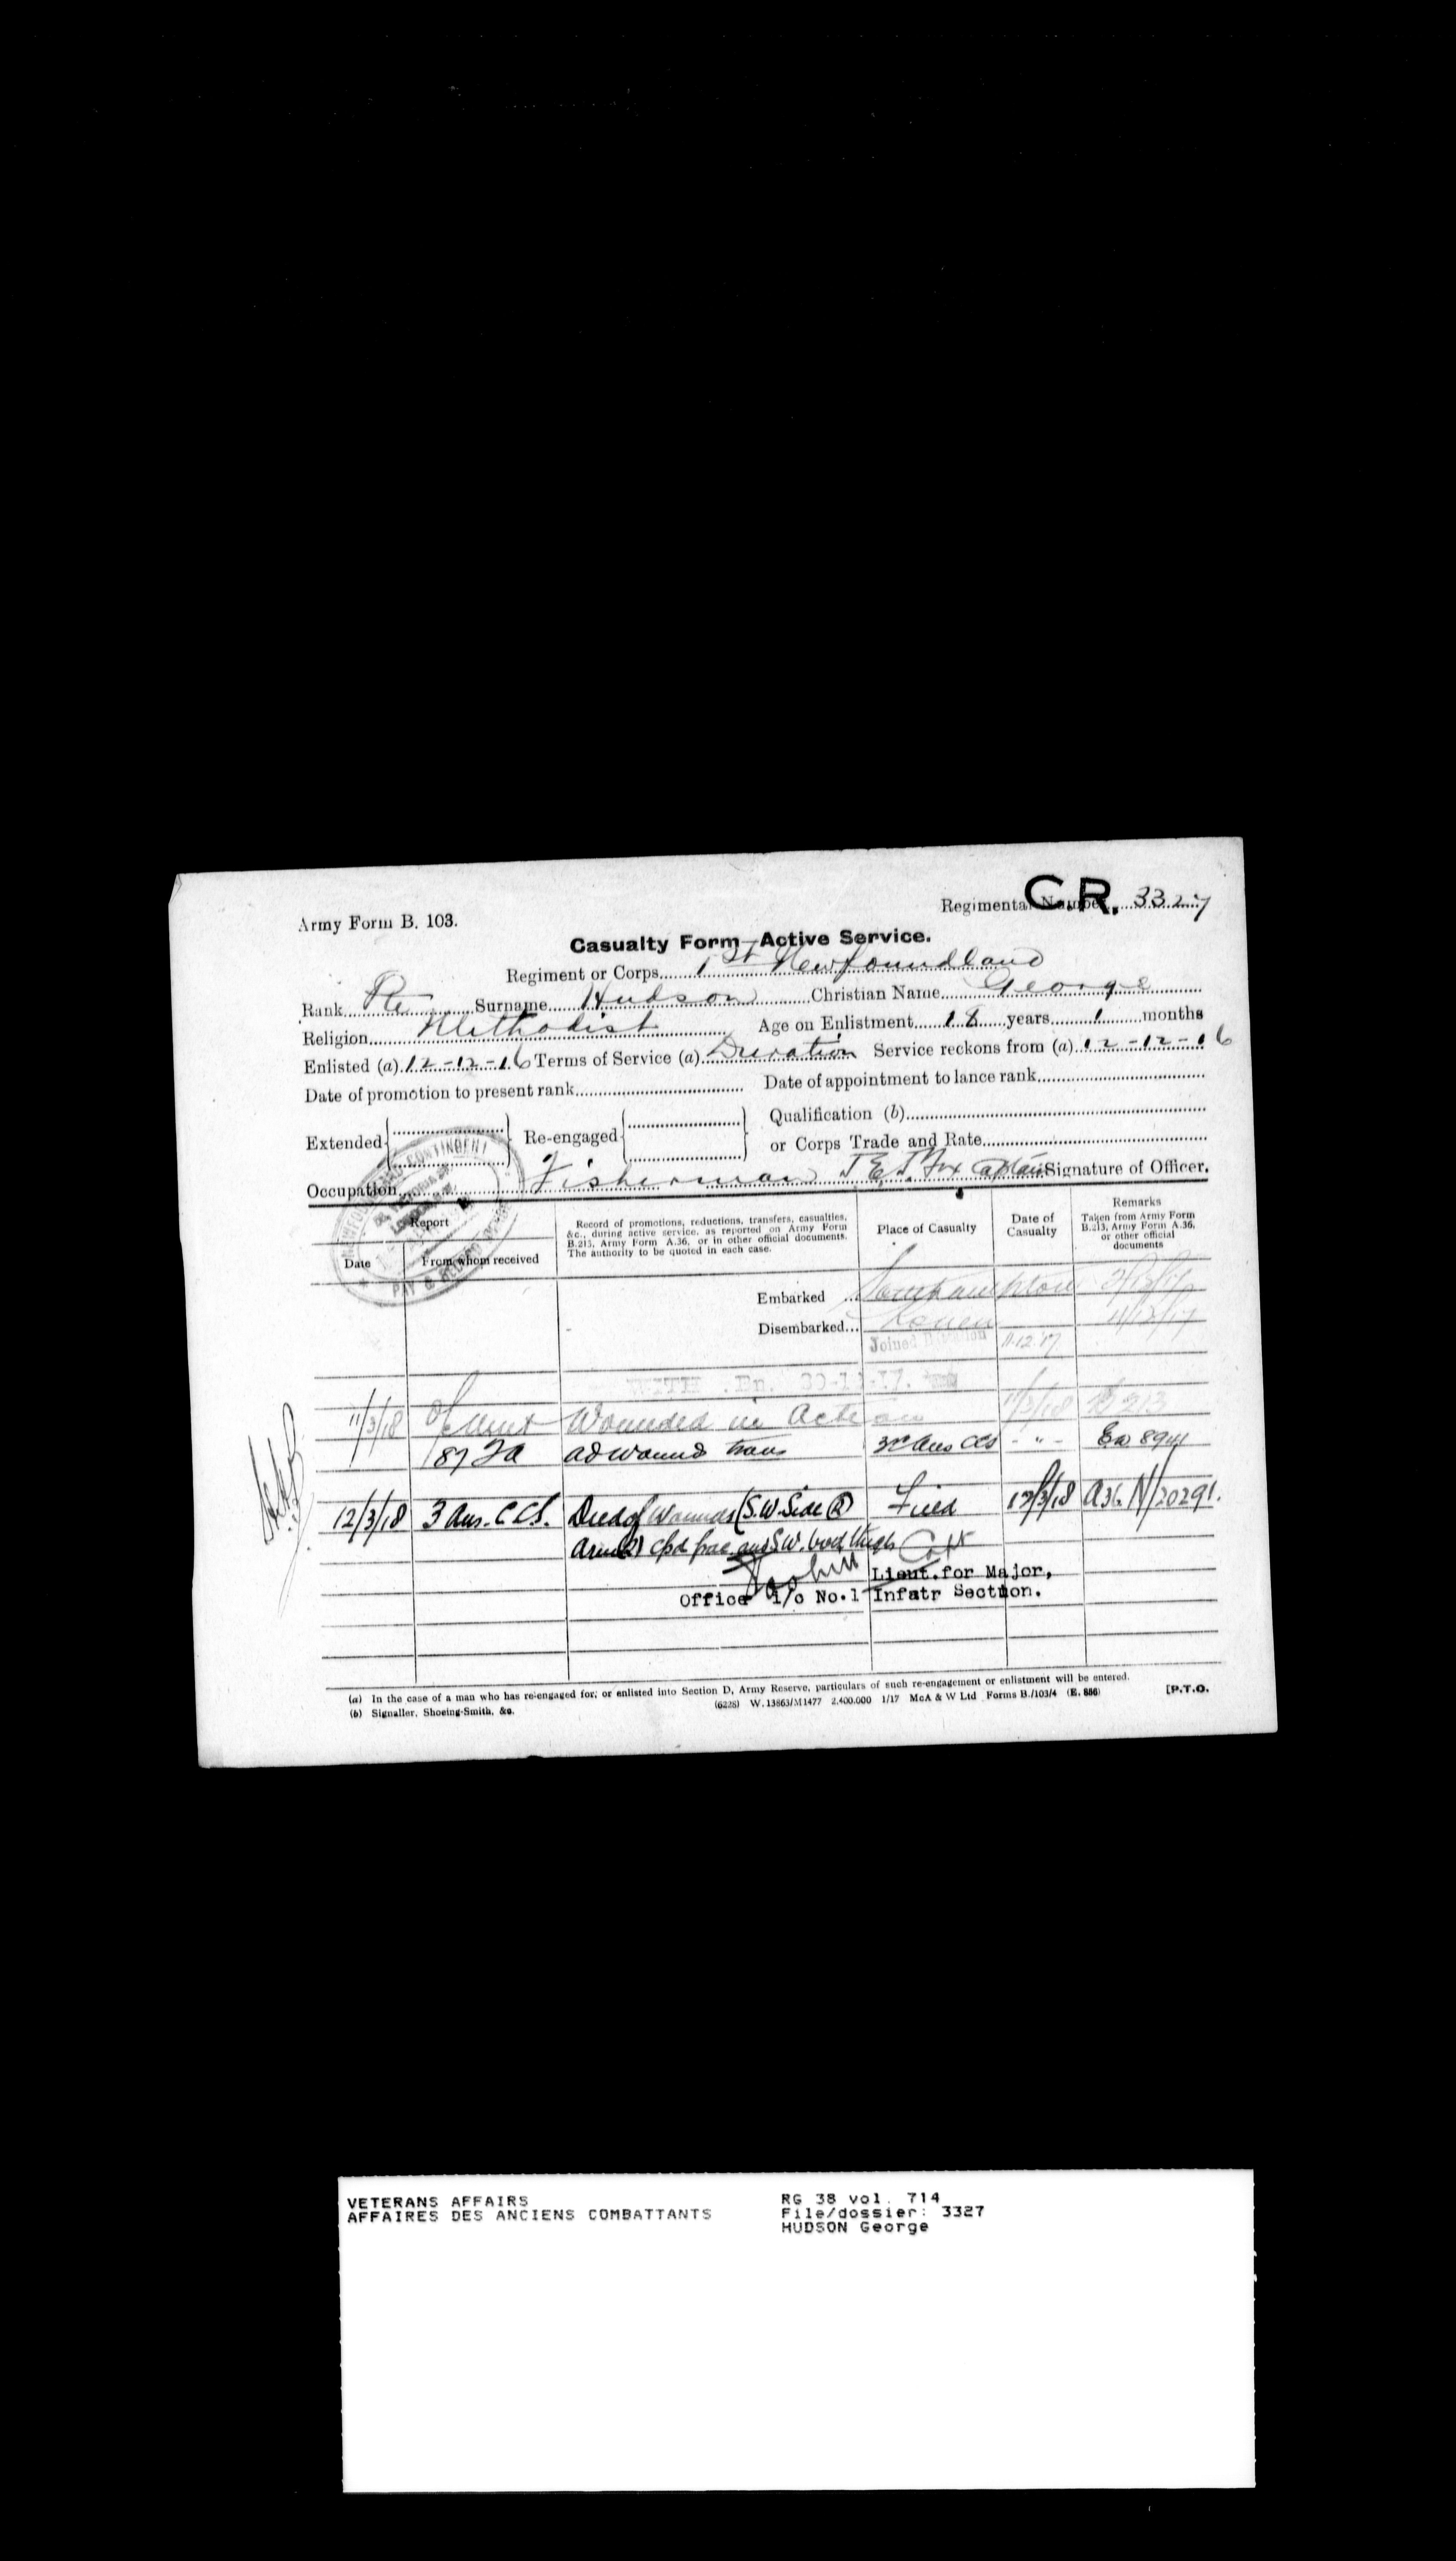 Army Form B. 103.
Regimental Number C.R. 3327
Casualty Form—Active Service.
Regiment or Corps 1st Newfoundland
Rank Pte Surname Hudson Christian Name George
Religion Methodist Age on Enlistment 18 years 1 months
Enlisted (a) 12-12-16 Terms of Service (a) Duration Service reckons from (a) 12-12-16
Date of promotion to present rank Date of appointment to lance rank
Extended Re-engaged Qualification (b)
or Corps Trade and Rate
Occupation Fisherman Captain Signature of Officer.
NEWFOUNDLAND CONTINGENT
PAY & RECORD OFFICE
Report
Date From whom received
Record of promotions, reductions, transfers, casualties, &c., during active service, as reported on Army Form B.213, Army Form A.36, or in other official documents. The authority to be quoted in each case.
Place of Casualty
Date of Casualty
Remarks
Taken from Army Form B.213, Army Form A.36, or other official documents
Embarked ... Southampton
Disembarked... Rouen 11/12/17
Joined Battalion 11.12.17
11/3/18 Of Unit Wounded in Action 11/3/18 B 213
87 FA ad wound trans 3rd Aus CCS - " -
12/3/18 3 Aus. C.C.S. Died of Wounds (S.W. Side (R) Field 12/3/18 A36 N/20291.
Arm (R) cpd frac and S.W. Thigh Capt
Lieut. for Major,
Office i/c No.1 Infatr Section.
(a) In the case of a man who has re-engaged for, or enlisted into Section D, Army Reserve, particulars of such re-engagement or enlistment will be entered.
(b) Signaller, Shoeing-Smith, &c.
(6228) W.13863/M1477 2,400,000 1/17 McA & W Ltd Forms B./103/4 (E. 886)
[P.T.O.
VETERANS AFFAIRS
AFFAIRES DES ANCIENS COMBATTANTS
RG 38 vol. 714
File/dossier: 3327
HUDSON George